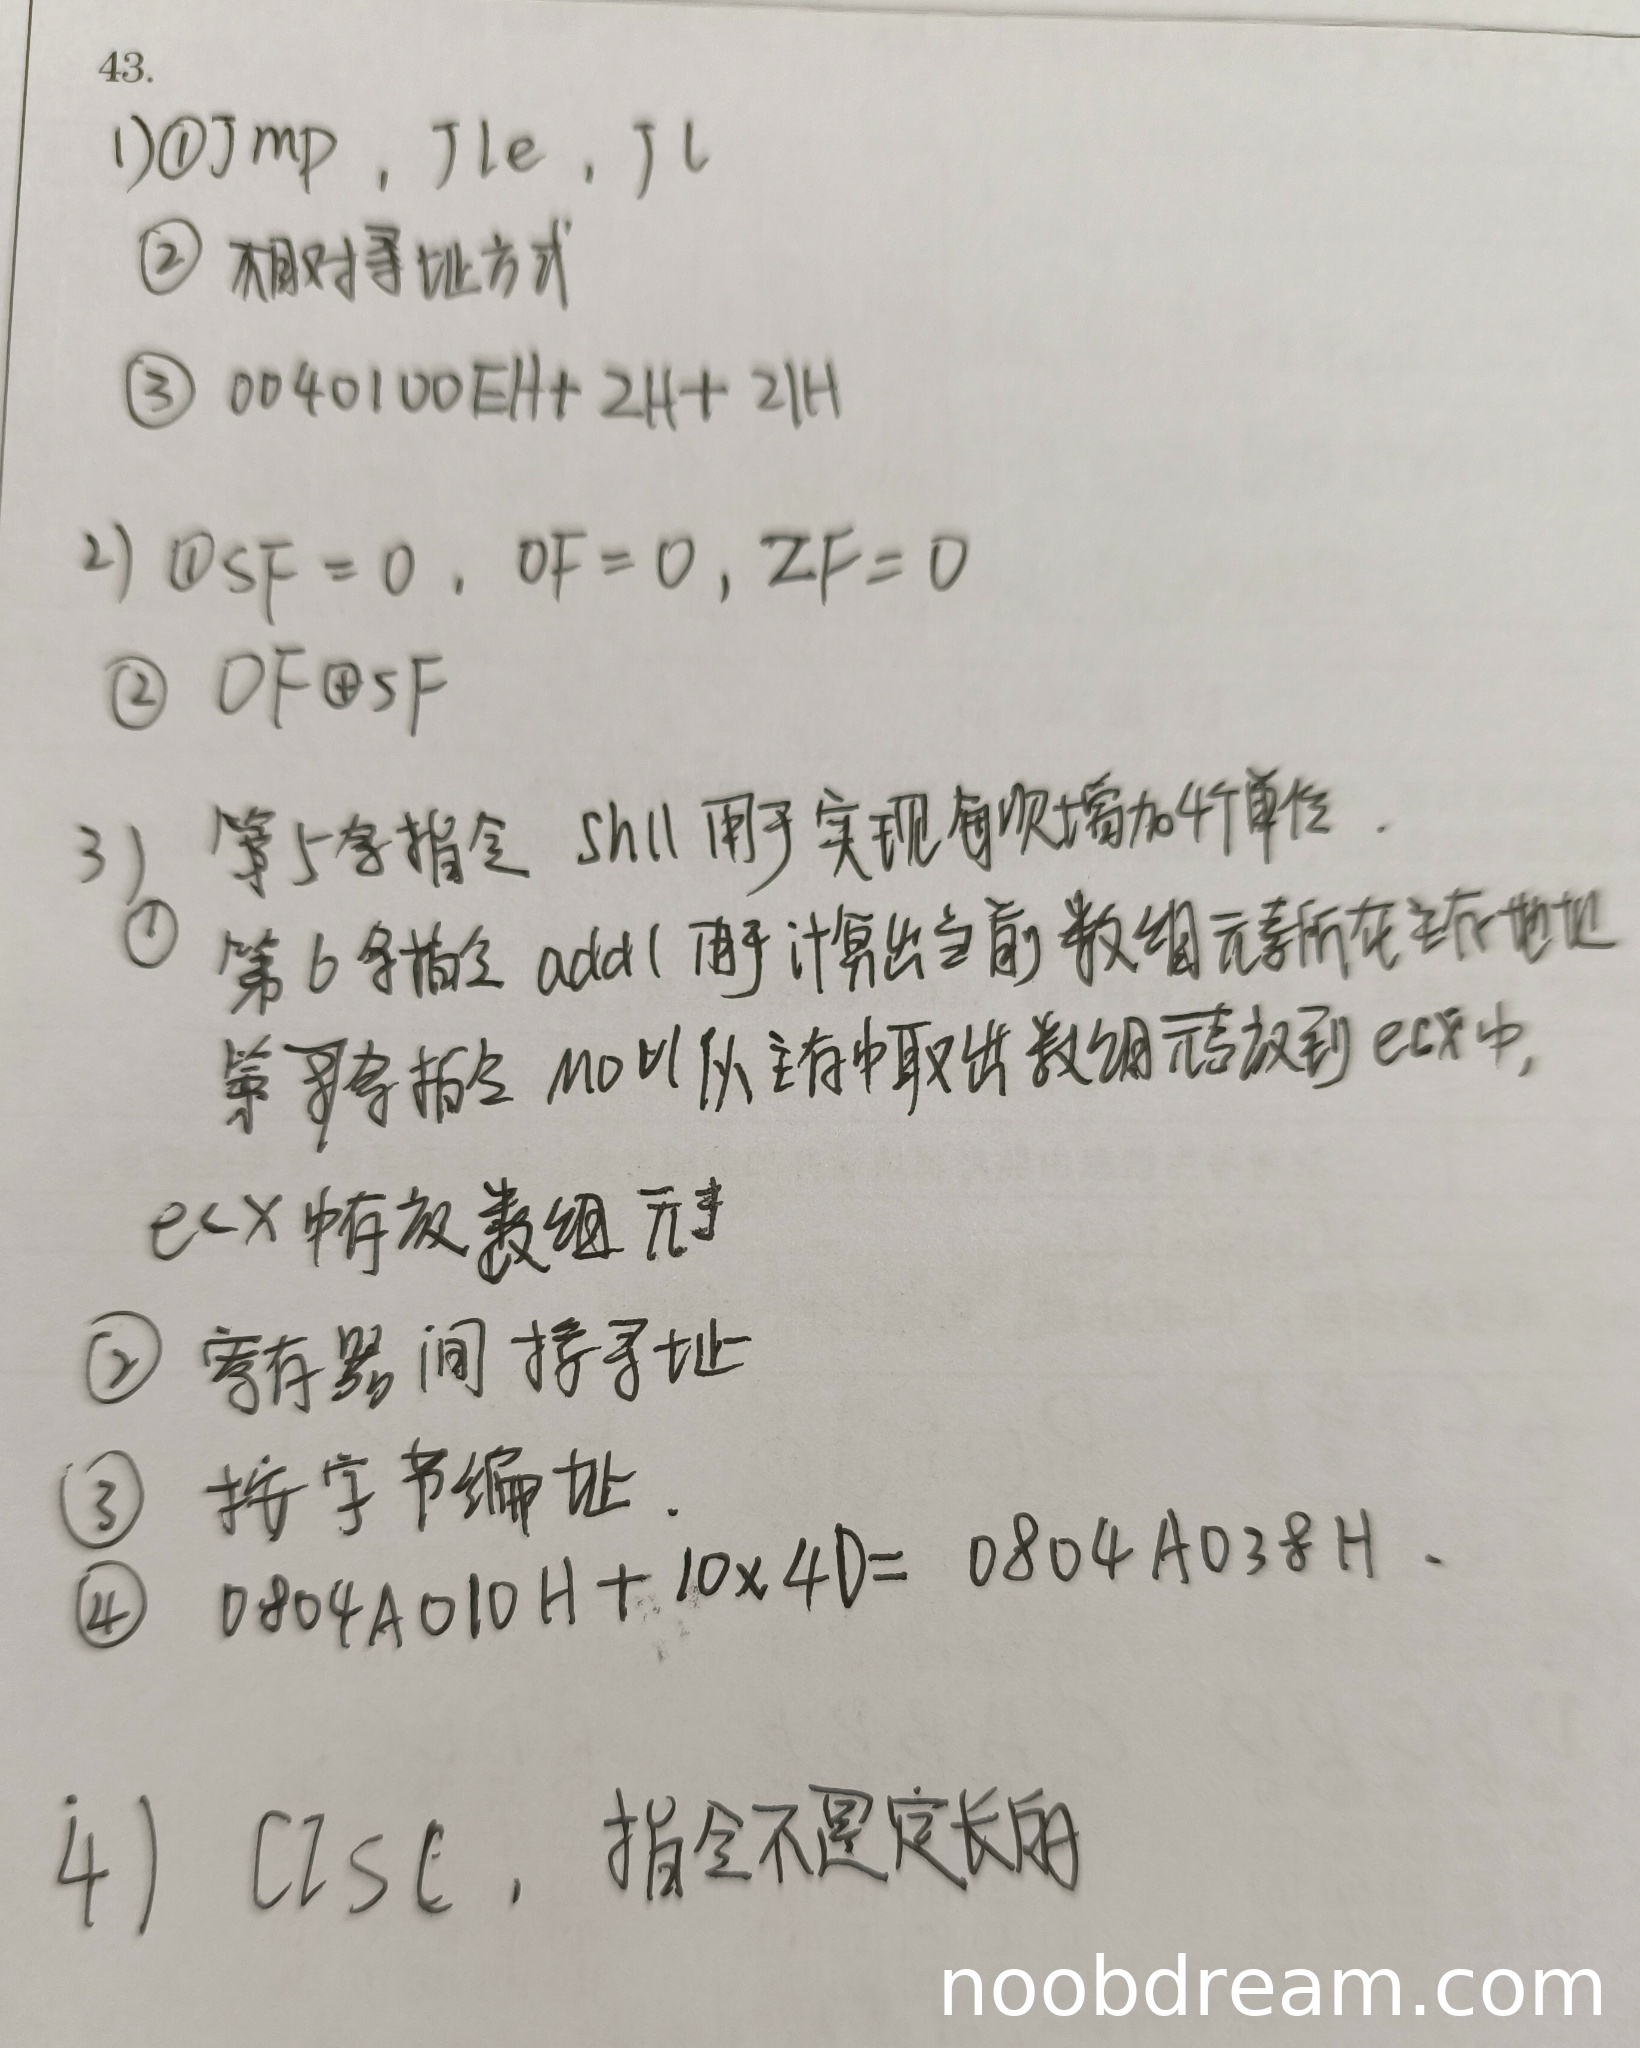 43.
1)①Jmp，Jle，jl
②相对寻址方式
③0040100EH+2H+21H
2)①SF=0，OF=0，ZF=0
②OF⊕SF
3)第5条指令 shll 用于实现每次增加4个单位.
①第6条指令 addl 用于计算出当前数组元素所在主存地址
第 条指令 movl 从主存中取出数组元素放到ecx中,
ecx中存放数组元素
②寄存器间接寻址
③按字节编址.
④0804A010H+10x4D=0804A038H.
4)CISC，指令不是定长的
noobdream.com